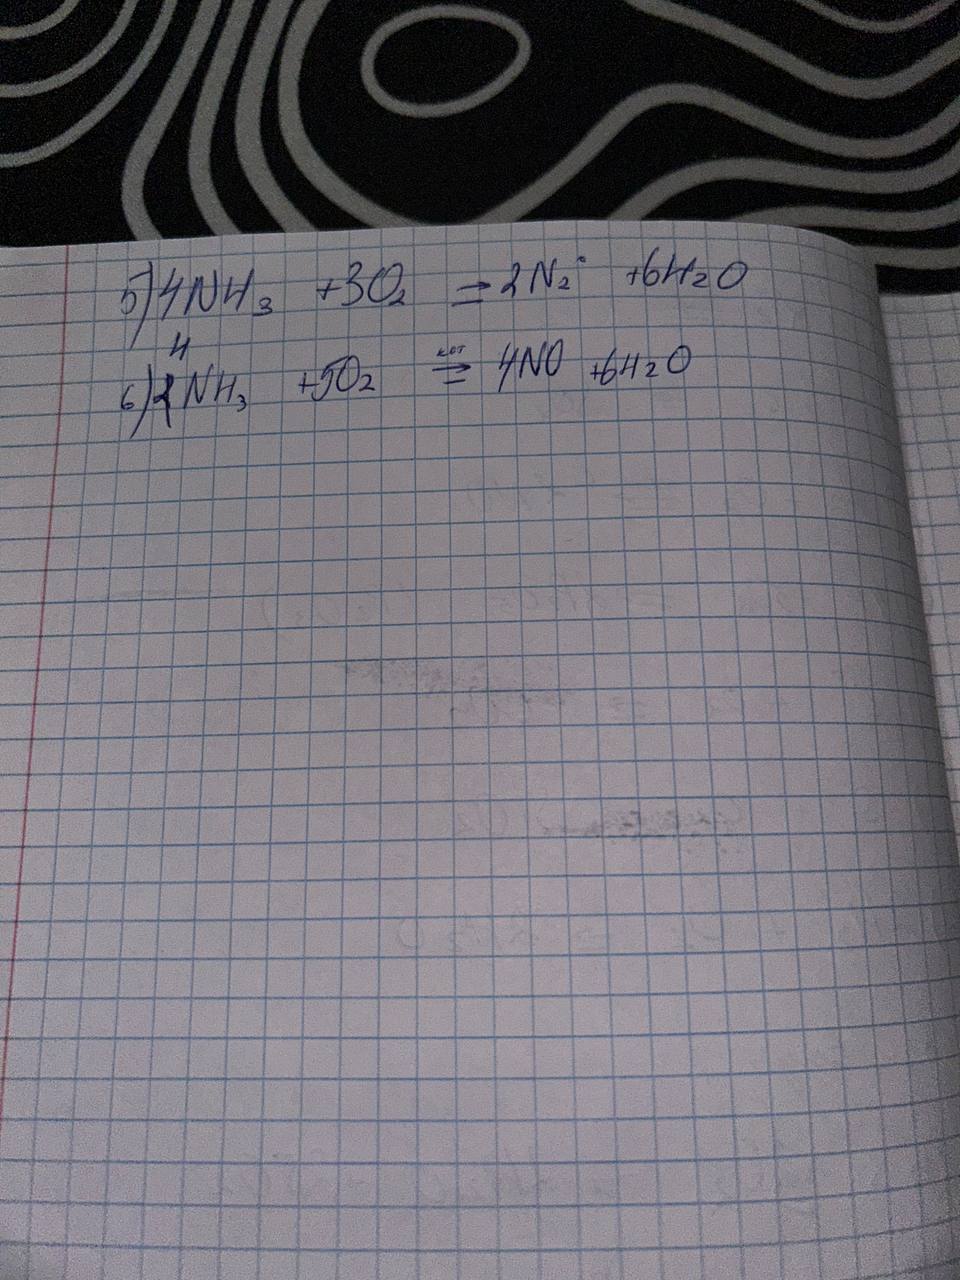 5) 4NH₃ + 3O₂ = 2N₂ + 6H₂O
6) 4NH₃ + 5O₂ =кат=> 4NO + 6H₂O